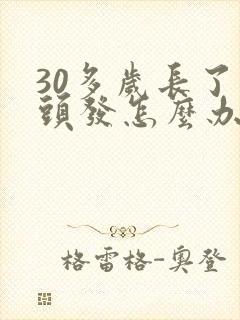 30多歲長了
頭發怎麼办
格雷格-奧登